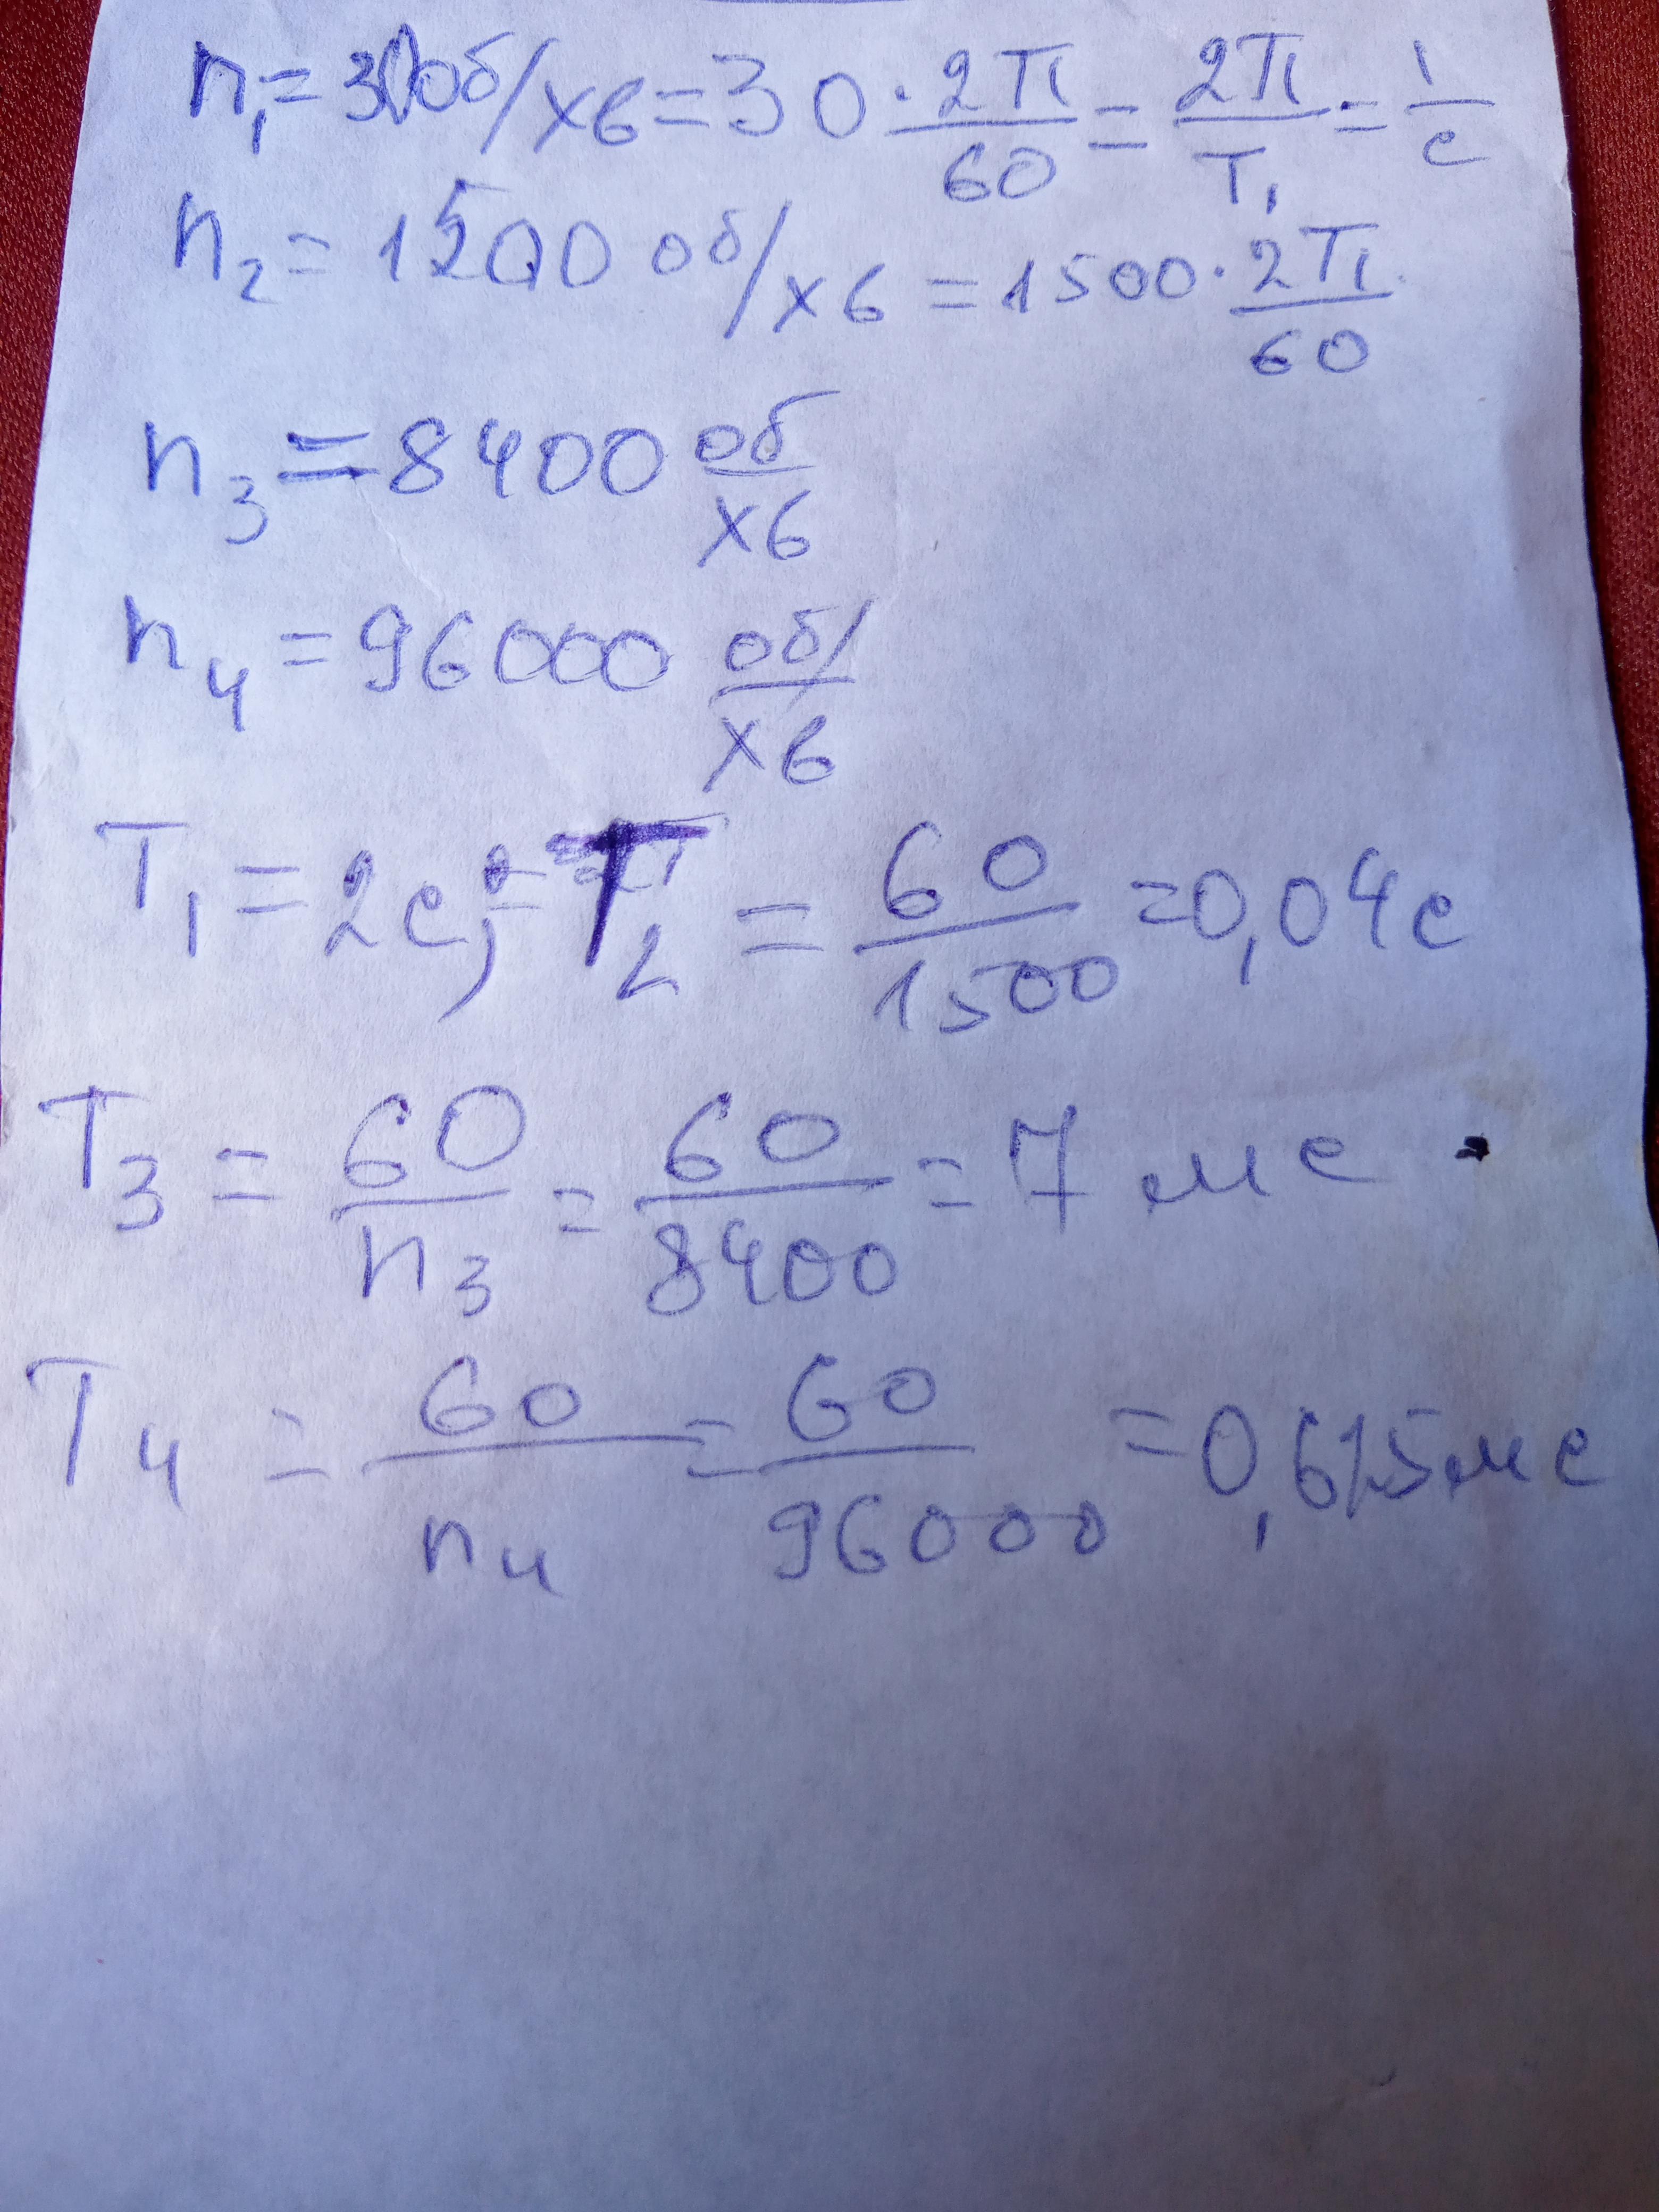 n₁ = 30 об/хв = 30 · 2π/60 = 2π/T₁ = 1/c
n₂ = 1500 об/хв = 1500 · 2π/60
n₃ = 8400 об/хв
n₄ = 96000 об/хв
T₁ = 2c, T₂ = 60/1500 = 0,04c
T₃ = 60/n₃ = 60/8400 = 7 мс
T₄ = 60/n₄ = 60/96000 = 0,615мс